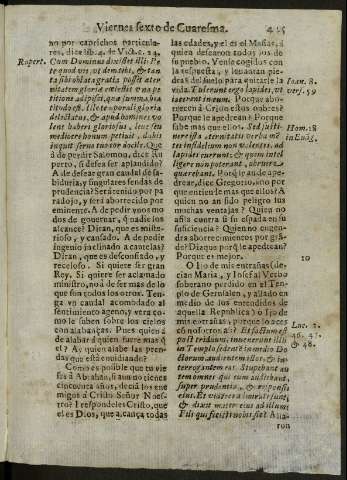 Viernes sexto de Cuaresma.
no por caprichos particula-
res, dize lib. 4. de Vide c. 24.
Rupert. Cum Dominus dixisset illi: Pe-
te quod vis, vt demtibi, & tan-
ta sibi oblata gratia posset
uitatem gloria
petitione adipisci, qua summa, bea
titudo est. Ille
delectatus, & apud homines vo
lens haberi gloriosus, leue seu
mediocre bonum petijt, dabis
inquit seruo tuo cor docile. Que
à de perdir Salomon, dize Ru
perto, si desea ser aplaudido?
A de desear gran caudal de sa-
biduria, y singulares sendas de
prudencia? Será temido por pa
radojo, y será aborrecido por
eminente. A de pedir vnos mo
dos de gouernar, q nadie los
alcance? Diran, que es miste-
rioso, y cansado. A de pedir
ingenio inclinado a cautelas?
Diran, que es desconfiado, y
receloso. Si quiere ser gran
Rey. Si quiere ser aclamado
ministro, no à de ser mas de lo
que son todos los otros. Ten-
ga vn caudal acomodado al
sentimiento ageno, y verá co-
mo le suben sobre los cielos
con alabanças. Pues quien à
de alabar à quien fuere mas q
el? Ay quien alabe las pren-
das que está embidiando?
Como es posible que tu vie
ses à Abrahan, si aun no tienes
cincuenta años, dezia los ene
migos à Christo Señor Nues-
tro? I respondeles Cristo, que
el es Dios, que alcança todas
las edades, y el es el Masias, à
quien desearon todos los de
su pueblo. Vense cogidos con
la respuesta, y leuantan pie-
dras del suelo para quitarle la Ioan. 8.
vida. Tulerunt ergo lapides, vt vers. 59
iacerent in eum. Porque abor-
recerá à Cristo estos pobres?
Porque le apedrean? Porque
sabe mas que ellos. Sed justi- Hom. 18
verba men- in Euāg.
tes infidelium non valentes, ad
lapides currunt: & quem intel
ligere non poterant, obruere
quærebant. Porq ir an de ape-
drear, dize Gregorio, sino por
que entiende mas que ellos? A
quien no an sido pesadas las
muchas ventajas? Quien no
afila contra si su espada en su
suficiencia? Quien no engen-
dra aborrecimientos por grā-
de? Diza que porq le apedreean?
Porque es mejor.
O Ijo de mis entrañas (de- 10
cian Maria, y Iosef al Verbo
soberano perdido en el Ten-
plo de Gerusalen, y allado en
medio de los entendidos de
aquella Republica) ò Ijo de
mis entrañas, porque lo aces
así con nosotros asi? Et factum est Luc. 2.
post triduum, inuenerunt illū 46. 47.
in Templo sedentē in medio Do & 48.
ctorum audientem illos, & in-
terrogantem eos. Stupebant au
tem omnes qui eum audiebant,
super prudentia, & responsis
eius. Et videntes admirati sunt,
& dixit mater eius ad illum:
Fili quid fecisti nobis sic? Alla-
ron